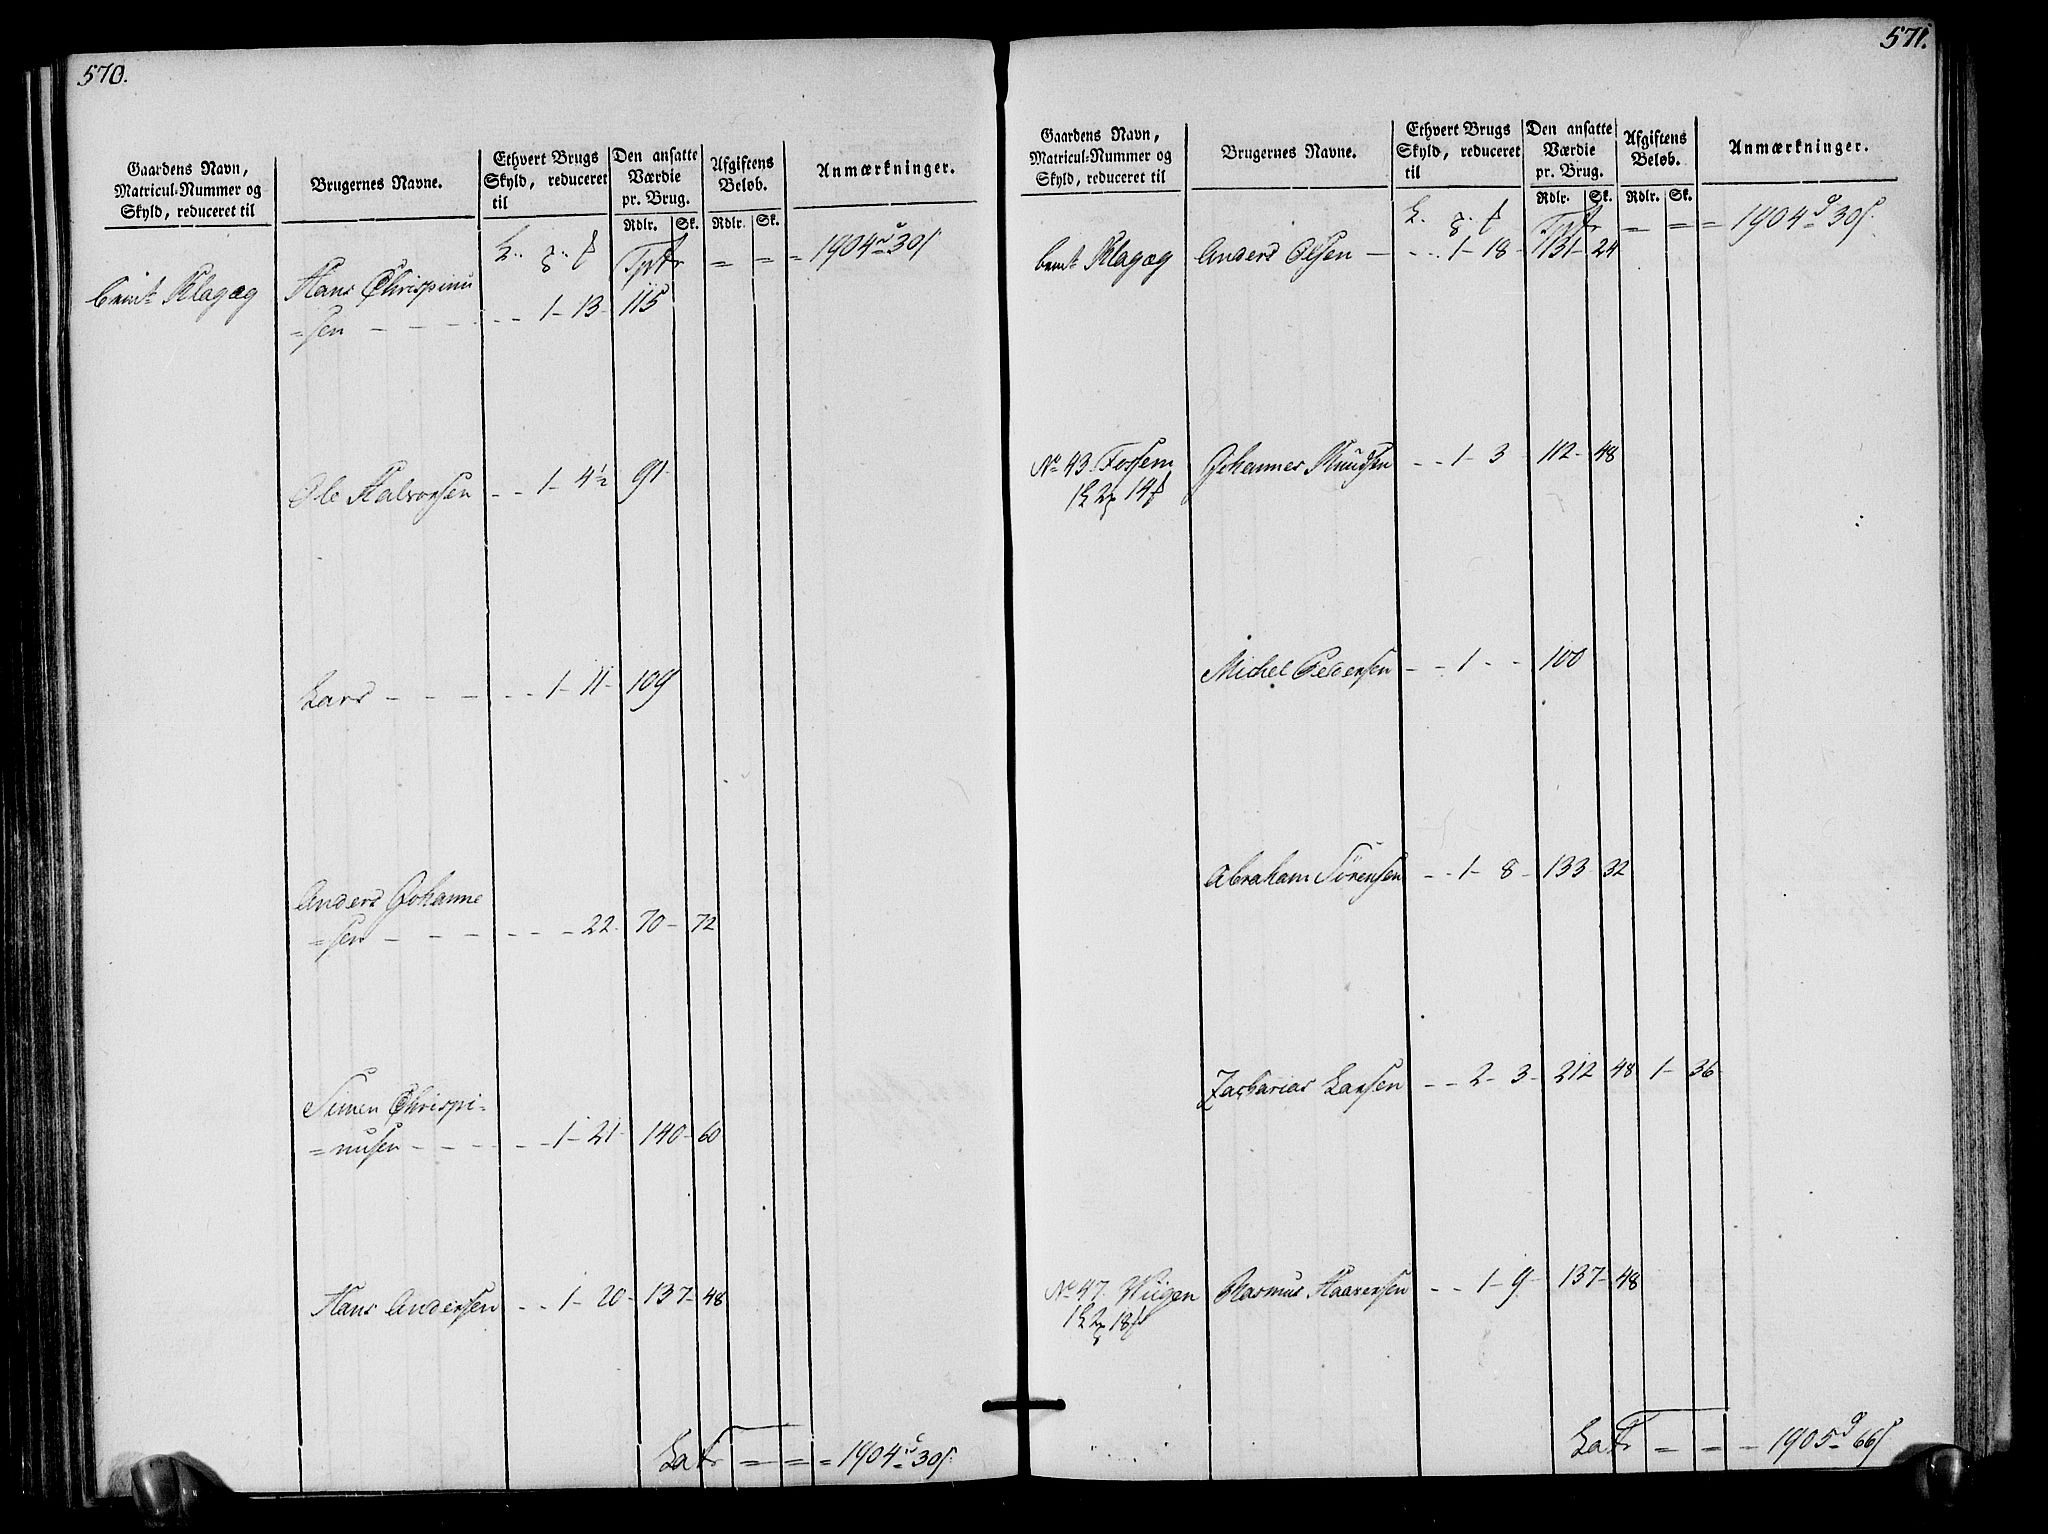 570.
Gaardens Navn, Matricul-Nummer og Skyld, reduceret til
Brugernes Navne.
Ethvert Brugs Skyld, reduceret til
Den ansatte Værdie pr. Brug.
Afgiftens Beløb.
Anmærkninger.
Rdlr. Sk. Rdlr. Sk.
Tpr = = = 1904 30
bemt Klagæg Hans Chrispinu
=sen - - - - - 1 - 13 - 115
Ole Halvorsen - - 1 - 4½ 91-
Lars - - - - - 1 - 11 - 109
Anders Johanne
=sen - - - - - - 22 - 70 - 72
Simen Chrispi=
=nusen - - - - - 1 - 21 - 140 - 60
Hans Andersen - - 1 - 20 - 137 - 48
Latr = = = 1904 30
571.
Gaardens Navn, Matricul-Nummer og Skyld, reduceret til
Brugernes Navne.
Ethvert Brugs Skyld, reduceret til
Den ansatte Værdie pr. Brug.
Afgiftens Beløb.
Anmærkninger.
Rdlr. Sk. Rdlr. Sk.
Tpr = = = 1904 30
bemt Klagæg Anders Olsen - - - 1 - 18 - 131 - 24
No 43. Fossem Johannes Knudsen - - 1 - 3 112 - 48
1 2 14
Michel Pedersen - - 1 - - 100
Abraham Sörensen - - 1 - 8 - 133 32
Zacharias Larsen - - 2 - 3 - 212 48 1 - 36
No 47. Wiigen Rasmus Haaversen - - 1 - 9 - 137 - 48
1 2 18
Latr = = - 1905 66